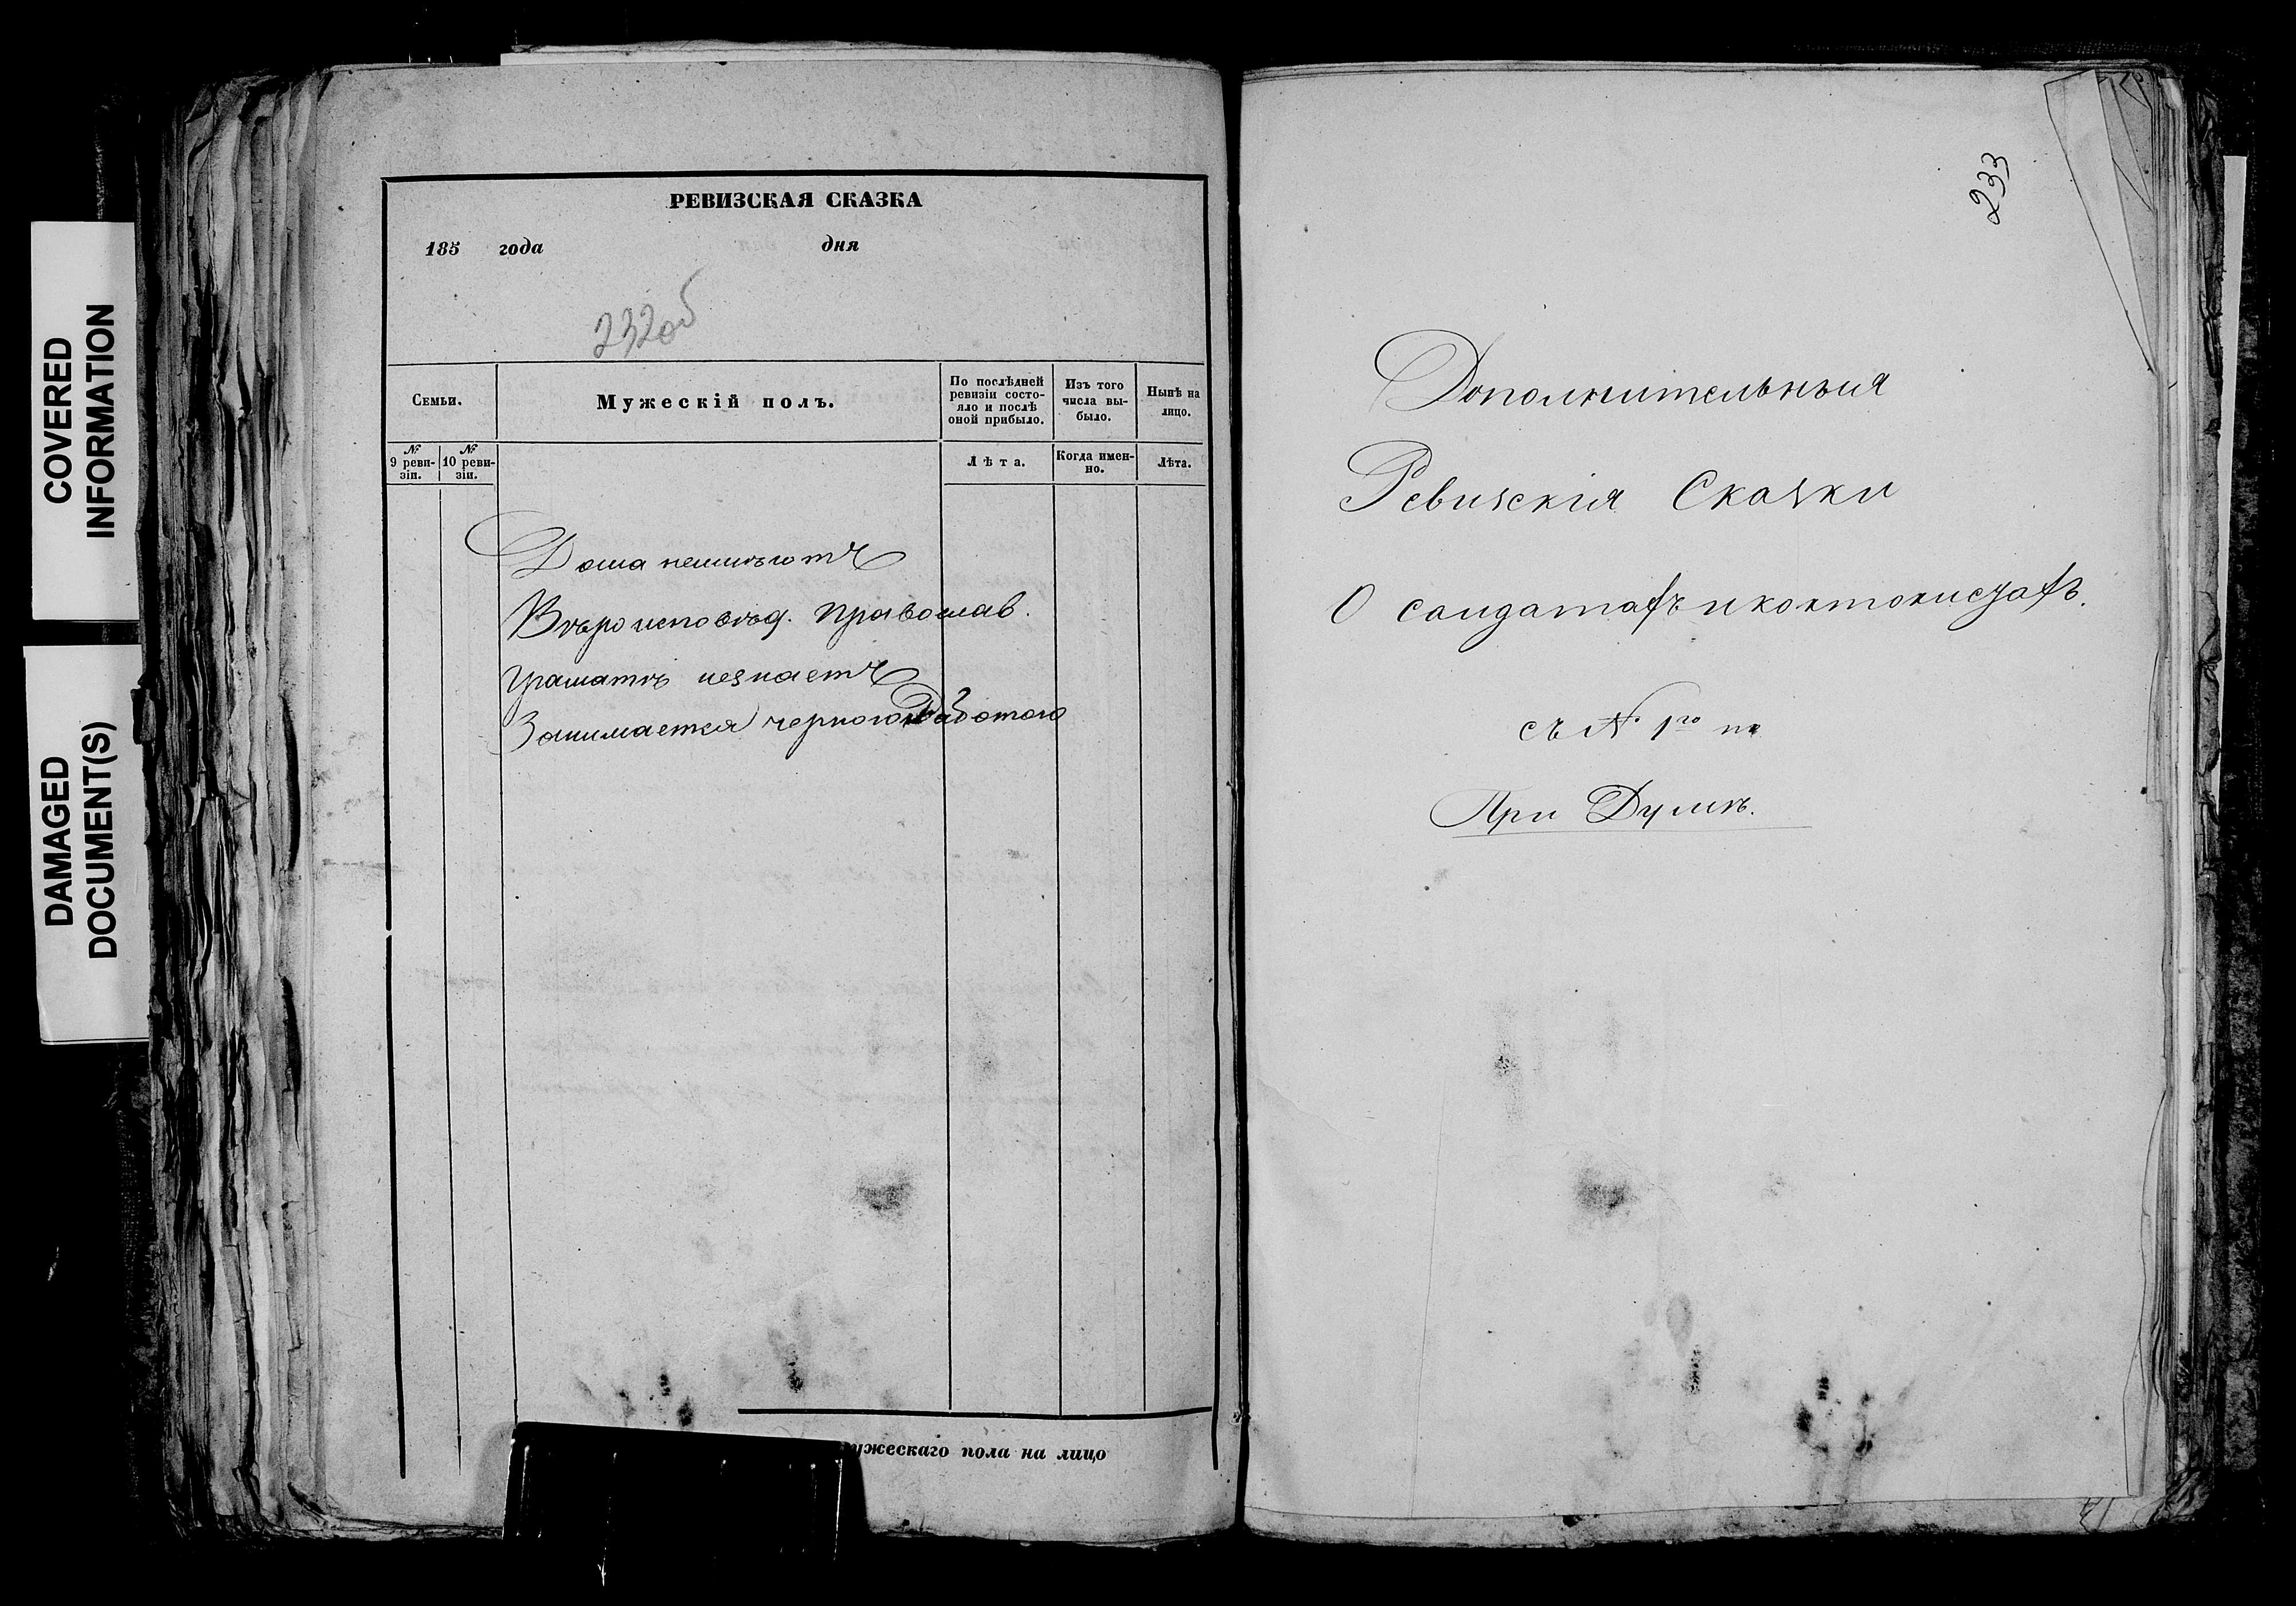 COVERED
INFORMATION
DAMAGED
DOCUMENT(S)
РЕВИЗСКАЯ СКАЗКА
185 года дня
232об
Семьи.
Мужескій полъ.
По послѣдней
ревизіи состо-
яло и послѣ
оной прибыло.
Изъ того
числа вы-
было.
Нынѣ на
лицо.
№
9 реви-
зіи.
№
10 реви-
зіи.
Лѣта.
Когда имен-
но.
Лѣта.
Дома неимѣютъ
Вѣроисповѣд. Православ.
граматѣ незнаетъ
Занимается черною Работою
ужескаго пола на лицо
233
Дополнительныя
Ревизскія Сказки
О солдатахъ и кантонистахъ.
съ № 1го по
При Думѣ.